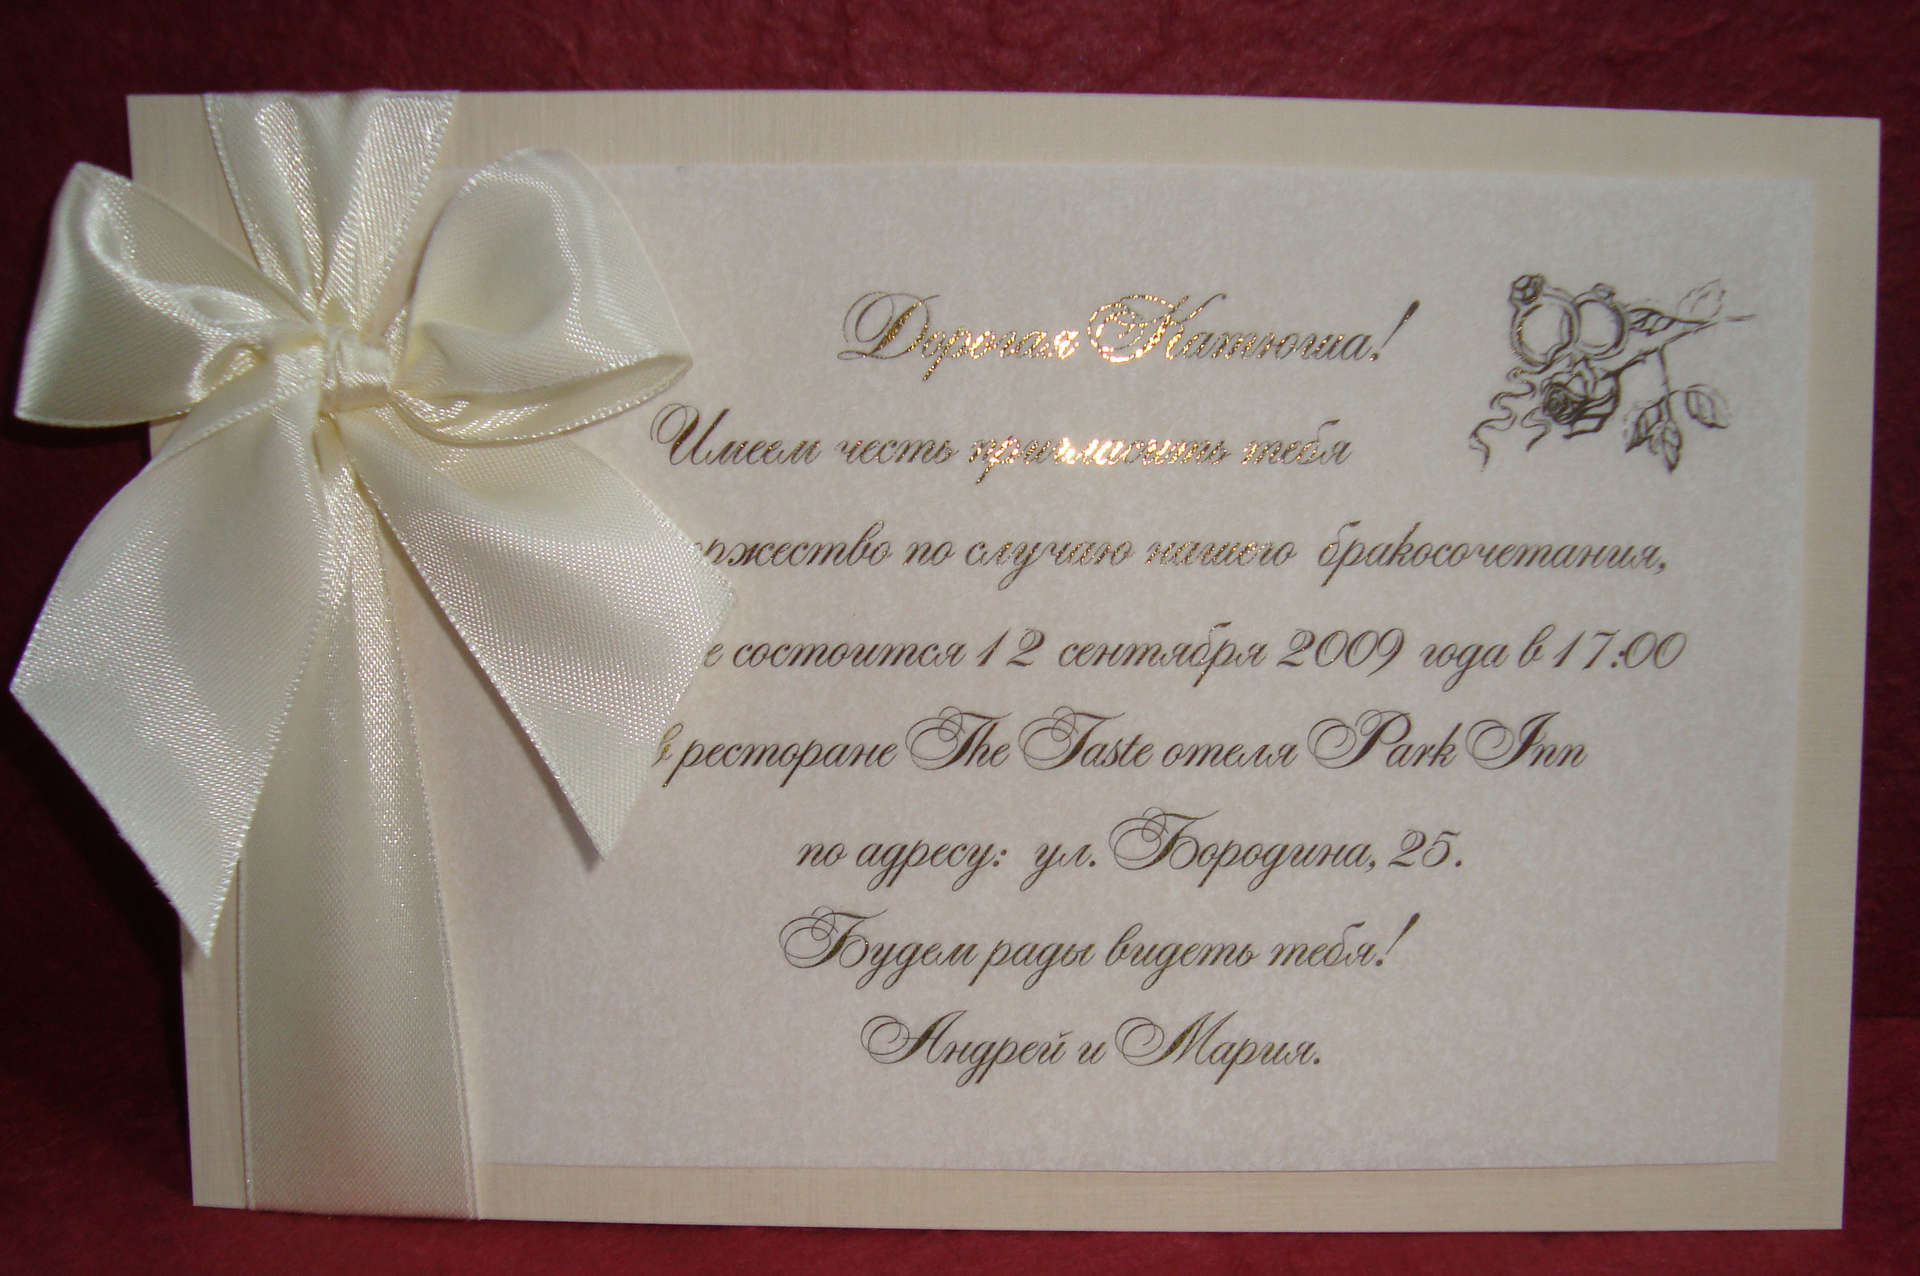 Дорогая Катюша!
Имеем честь пригласить тебя
по случаю нашего бракосочетания,
состоится 12 сентября 2009 года в 17:00
в ресторане The Taste отеля Park Inn
по адресу: ул. Бородина, 25.
Будем рады видеть тебя!
Андрей и Мария.